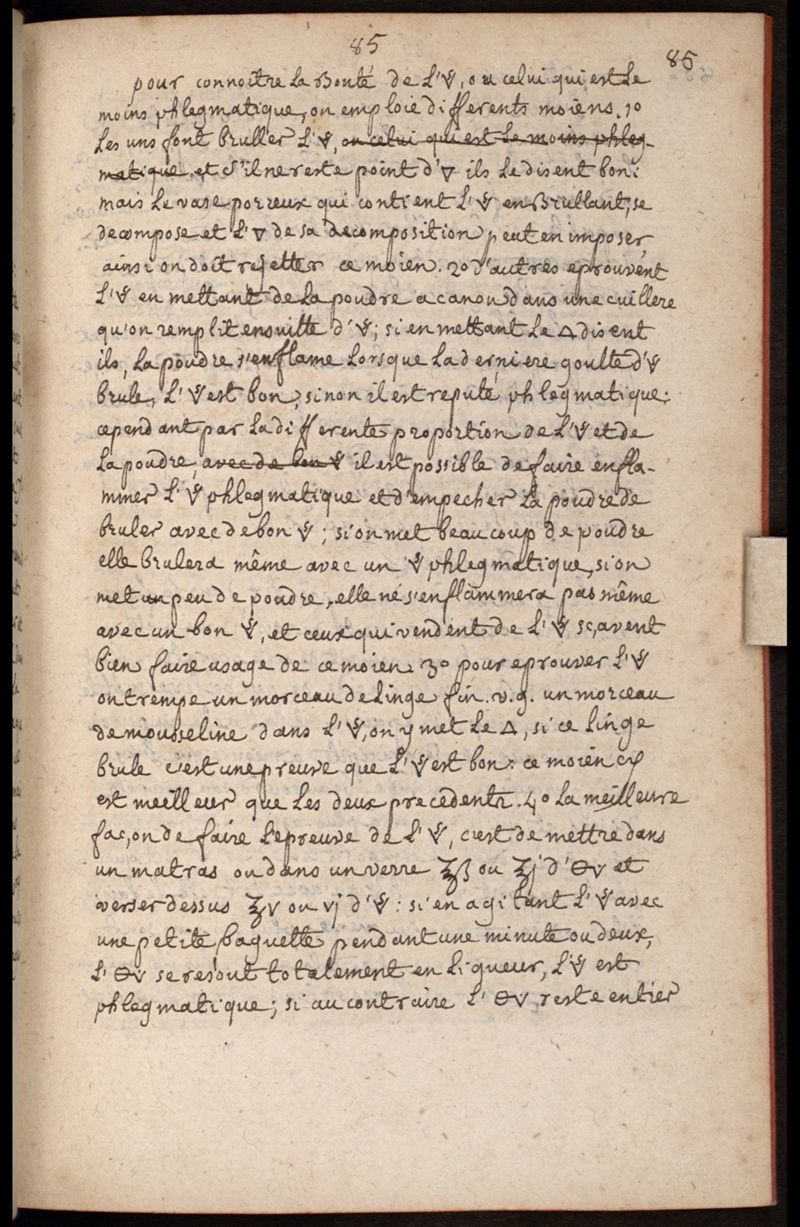 85
85
pour connoitre la Bonté de L'🜈, ou celui qui est Le
moins phlegmatique, on emploie differents moiens. 1o
Les uns font bruller L'🜈, ou celui qui est Le moins phleg-
matique et s'il ne reste point d'🜄 ils Le disent bon:
mais Le vase porreux qui contient L'🜈 en Brullant, se
decompose et L'🜄 de sa decomposition peut en imposer
ainsi on doit rejetter ce moien. 2o d'autres eprouvent
L'🜈 en mettant de La poudre a canon dans une cuillere
qu'on remplit ensuitte d'🜈; si en mettant Le 🜂 disent
ils, La poudre s'enflame Lorsque La derniere goutte d'🜈
brule, L'🜈 est bon, sinon il est reputé phlegmatique:
cependant par La differente proportion de L'🜈 et de
La poudre, avec de bon 🜈 il est possible de faire enfla-
mmer L'🜈 phlegmatique et d'empecher La poudre de
bruler avec de bon 🜈; si on met beaucoup de poudre
elle brulera même avec un 🜈 phlegmatique, si on
met un peu de poudre, elle ne s'enflammera pas même
avec un bon 🜈, et ceux qui vendent de L'🜈 sçavent
bien faire usage de ce moien. 3o pour eprouver L'🜈
on trempe un morceau de Linge fin. v.g. un morceau
de mousseline dans L'🜈, on y met Le 🜂, si ce linge
brule c'est une preuve que L'🜈 est bon: ce moien cy
est meilleur que Les deux precedents. 4o La meilleure
façon de faire L'epreuve de L'🜈, c'est de mettre dans
un matras ou dans un verre ʒß ou ʒj d'🜔🜄 et
verser dessus ʒv ou vj d'🜈: si en agitant L'🜈 avec
une petite baguette pendant une minute ou deux,
L'🜔🜄 se resout totalement en Liqueur, L'🜈 est
phlegmatique; si au contraire L'🜔🜄 reste entier